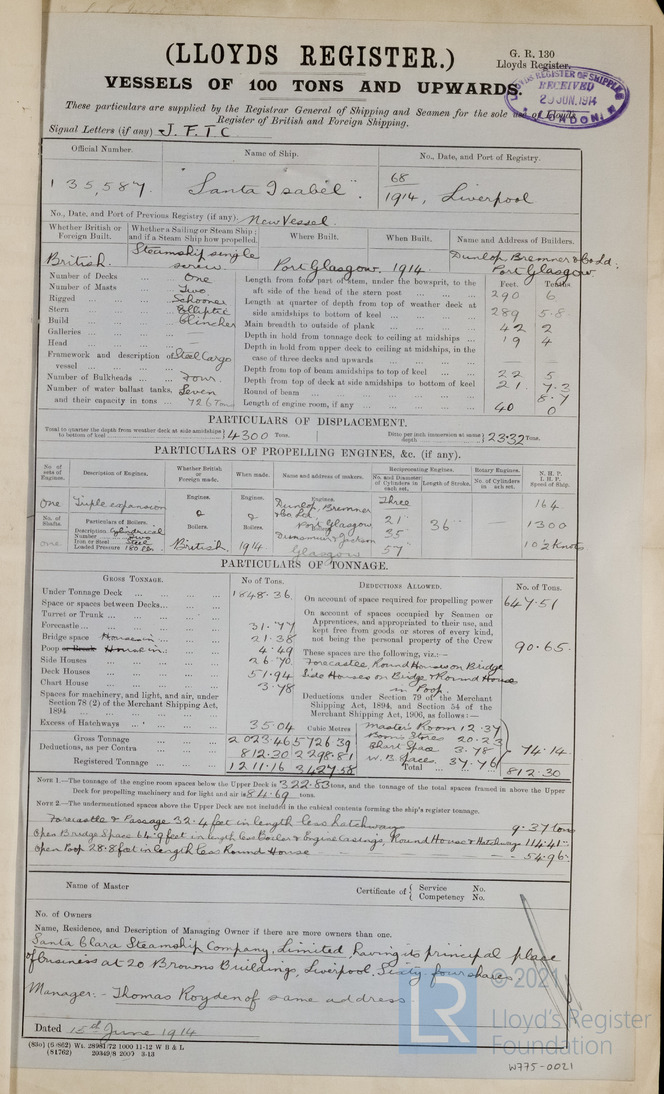 (LLOYDS REGISTER.)
G. R. 130
Lloyds Register.
VESSELS OF 100 TONS AND UPWARDS.
LLOYDS REGISTER OF SHIPPING
RECEIVED
29 JUN. 1914
LONDON. E
These particulars are supplied by the Registrar General of Shipping and Seamen for the sole use of Lloyds
Register of British and Foreign Shipping.
Signal Letters (if any) J. F. T. C
Official Number. Name of Ship. No., Date, and Port of Registry.
135,587. "Santa Isabel". 68/1914, Liverpool
No., Date, and Port of Previous Registry (if any). New Vessel.
Whether British or Foreign Built. Whether a Sailing or Steam Ship; and if a Steam Ship how propelled. Where Built. When Built. Name and Address of Builders.
British. Steamship single screw. Port Glasgow. 1914. Dunlop Bremner & Co Ld: Port Glasgow
Number of Decks ... One
Number of Masts ... Two
Rigged ... Schooner
Stern ... Elliptic
Build ... Clincher
Galleries ... —
Head ... —
Framework and description of vessel ... Steel Cargo
Number of Bulkheads ... Four.
Number of water ballast tanks, and their capacity in tons ... Seven 726 Tons
Feet. Tenths
Length from fore part of stem, under the bowsprit, to the aft side of the head of the stern post ... 290 6
Length at quarter of depth from top of weather deck at side amidships to bottom of keel ... 289 5.8
Main breadth to outside of plank ... 42 2
Depth in hold from tonnage deck to ceiling at midships ... 19 4
Depth in hold from upper deck to ceiling at midships, in the case of three decks and upwards — —
Depth from top of beam amidships to top of keel ... 22 5
Depth from top of deck at side amidships to bottom of keel 21. 7.3
Round of beam ... 8.7
Length of engine room, if any ... 40 0
PARTICULARS OF DISPLACEMENT.
Total to quarter the depth from weather deck at side amidships to bottom of keel 4300 Tons. Ditto per inch immersion at same depth 23.32 Tons.
PARTICULARS OF PROPELLING ENGINES, &c. (if any).
No. of sets of Engines. Description of Engines. Whether British or Foreign made. When made. Name and address of makers. Reciprocating Engines. Rotary Engines. N. H. P. I. H. P. Speed of Ship.
No. and Diameter of Cylinders in each set. Length of Stroke. No. of Cylinders in each set.
One Triple expansion Engines. & Engines. & Engines. Dunlop, Bremner & Co Ld. Port Glasgow Three 21" 35" 57" 36" — 164 1300 10½ Knots
No. of Shafts. Particulars of Boilers. Boilers. Boilers.
One Description Cylindrical
Number Two
Iron or Steel Steel
Loaded Pressure 180 lbs British. 1914 Dunsmuir & Jackson Glasgow
PARTICULARS OF TONNAGE.
GROSS TONNAGE. No of Tons.
Under Tonnage Deck ... 1848.36
Space or spaces between Decks...
Turret or Trunk ...
Forecastle ... 31.77
Bridge space House in ... 21.38
Poop or Break House in ... 4.49
Side Houses ... 26.70
Deck Houses ... 51.94
Chart House ... 3.78
Spaces for machinery, and light, and air, under Section 78 (2) of the Merchant Shipping Act, 1894 ...
Excess of Hatchways ... 35.04
Cubic Metres
Gross Tonnage 2023.46 5726.39
Deductions, as per Contra 812.30 2298.81
Registered Tonnage 1211.16 3427.58
DEDUCTIONS ALLOWED. No. of Tons.
On account of space required for propelling power 647.51
On account of spaces occupied by Seamen or Apprentices, and appropriated to their use, and kept free from goods or stores of every kind, not being the personal property of the Crew 90.65.
These spaces are the following, viz.:—
Forecastle, Round Houses on Bridge
Side Houses on Bridge & Round House
in Poop.
Deductions under Section 79 of the Merchant Shipping Act, 1894, and Section 54 of the Merchant Shipping Act, 1906, as follows:—
Master's Room 12.37
Bosn's Stores 20.23
Chart Space 3.78
W. B. Space 37.76
74.14
Total ... 812.30
NOTE 1.—The tonnage of the engine room spaces below the Upper Deck is 322.83 tons, and the tonnage of the total spaces framed in above the Upper
Deck for propelling machinery and for light and air is 84.69 tons.
NOTE 2.—The undermentioned spaces above the Upper Deck are not included in the cubical contents forming the ship's register tonnage.
Forecastle & Passage 32.4 feet in length less hatchway 9.37 tons
Open Bridge Space 64.9 feet in length less Boiler & Engine Casings, Round House & Hatchway 114.41 "
Open Poop 28.8 feet in length less Round House — — 54.96 "
Name of Master
Certificate of { Service No. Competency No.
No. of Owners
Name, Residence, and Description of Managing Owner if there are more owners than one.
Santa Clara Steamship Company, Limited, having its principal place
of business at 20 Browns Buildings, Liverpool. Sixty four shares
Manager:- Thomas Royden of same address.
Dated 15th June 1914
(83o) (6/862) Wt. 28981/72 1000 11-12 W B & L
(81762) 20349/8 2000 3-13
© 2021
LR
Lloyd's Register
Foundation
W775-0021